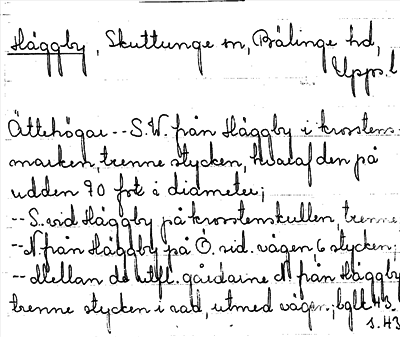 Håggby, Skuttunge sn, Bälinge hd,
Upps. l
Ättehögar -- S.W. från Håggby i krorstens-
marken, trenne stycken, hvaraf den på
udden 70 fot i diameter;
-- S. vid Håggby på krorstenskullen, trenne
-- N. från Håggby på Ö. sid. vägen 6 stycken;
-- Mellan de utfl. gårdarne N. från Håggby
trenne stycken i rad, utmed vägen; bglt 43.
s. 43